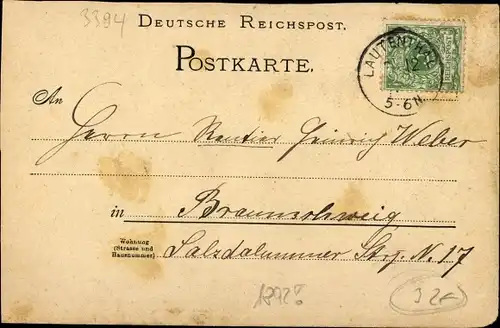 3394
DEUTSCHE REICHSPOST.
POSTKARTE.
LAUTENTHAL
5-6N.
An
Herrn Rentier Heinrich Weber
in Braunschweig
Wohnung
(Strasse und
Hausnummer)
Salzdalummer Str. N. 17
1892?
32€